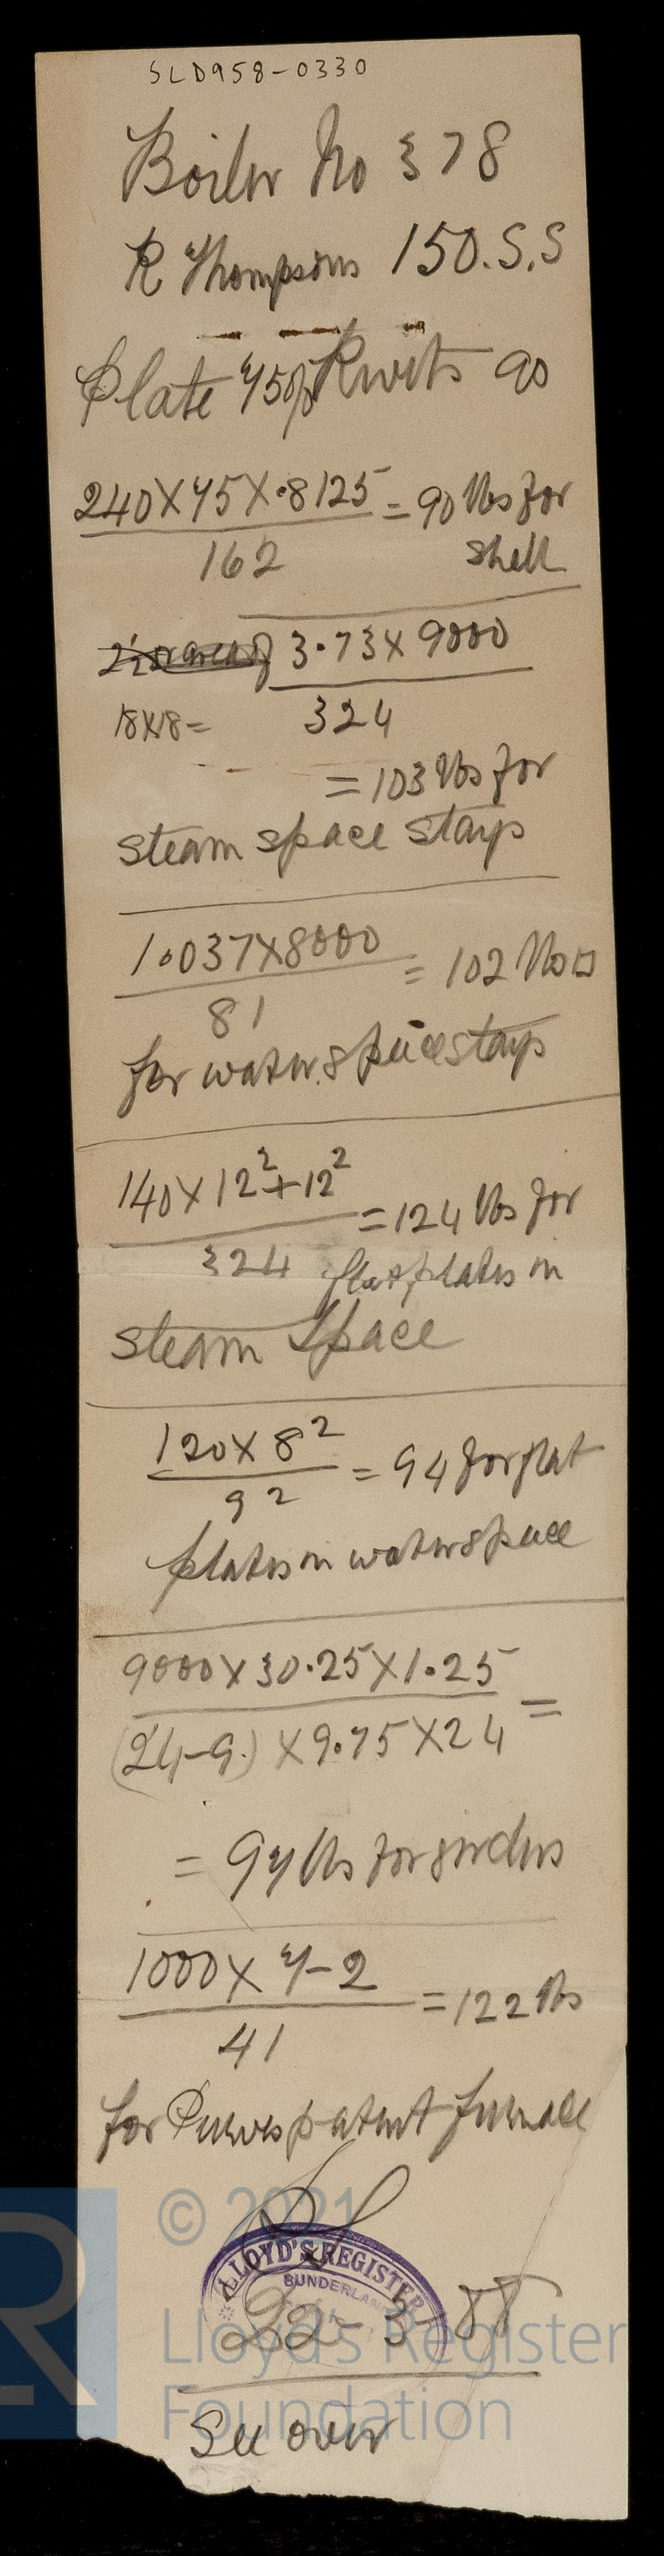 SLD958-0330
Boiler No 378
R Thompsons 150.S.S
Plate 75% Rivets 90
240X75X.8125 = 90 lbs for
162 shell
3.73X9000
18X18= 324
= 103 lbs for
steam space stays
1.037X8000 = 102 lbs □
81
for water space stays
140X12²+12² = 124 lbs for
324 flat plates in
steam space
120X8² = 94 for flat
9²
plates in water space
9000X30.25X1.25 =
(24-9.)X9.75X24
= 97 lbs for girders
1000X7-2 = 122 lbs
41
for Purves patent furnace
© 2021
LLOYD'S REGISTER
SUNDERLAND
22-3-88
Lloyd's Register
Foundation
See over